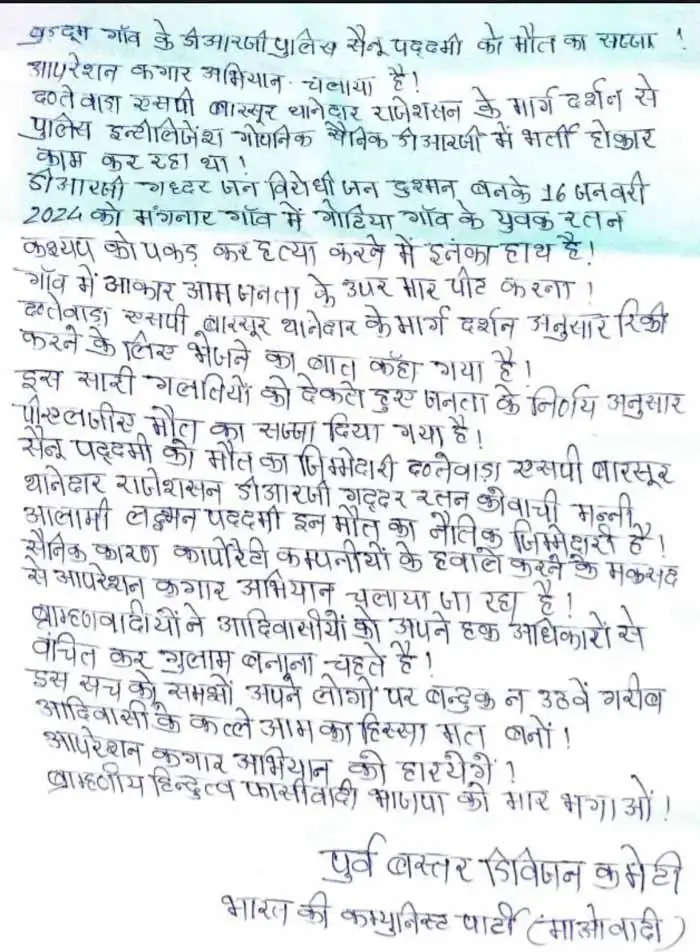 बुड़दूम गॉव के डीआरजी पुलिस सैनू पद्दमी को मौत का सज्जा !
आपरेशन कगार अभियान चलाया है !
दन्तेवाडा एसपी बारसूर थानेदार राजेशसन के मार्ग दर्शन से
पुलिस इन्टीलिजेंश गोपनिक सैनिक डीआरजी में भर्ती होकार
काम कर रहा था !
डीआरजी गध्दर जन विरोधी जन दुश्मन बनके 16 जनवरी
2024 को मंगनार गॉव में गोहिया गॉव के युवक रतन
कश्यप को पकड़ कर हत्या करने में इनका हाथ है !
गॉव में आकार आम जनता के उपर मार पीट करना !
दन्तेवाडा एसपी बारसूर थानेदार के मार्ग दर्शन अनुसार रिकी
करने के लिए भेजने का बात कहॉ गया है !
इस सारी गलतियों को देकते हुए जनता के निर्णय अनुसार
पीएलजीए मौत का सज्जा दिया गया है !
सैनू पद्दमी की मौत का जिम्मेदारी दन्तेवाडा एसपी बारसूर
थानेदार राजेशसन डीआरजी गद्दर रतन कोवाची मन्नी
आलामी लक्ष्मन पद्दमी इन मौत का नैतिक जिम्मेदारी है !
सैनिक कारण कार्पोरेटी कम्पनीयों के हवाले करने के मकसद
से आपरेशन कगार अभियान चलाया जा रहा है !
ब्राम्हणवादीयों ने आदिवासीयों को अपने हक अधिकारों से
वंचित कर गुलाम बनाना चहते है !
इस सच को समझों अपने लोगों पर बन्दुक न उठवें गरीब
आदिवासी के कत्ले आम का हिस्सा मत बनों !
आपरेशन कगार अभियान को हारयेगें !
ब्राम्हणीय हिन्दुत्व फासीवादी भाजपा को मार भगाओं !
पुर्व बस्तर डिविजन कमेटी
भारत की कम्युनिस्ट पार्टी (माओवादी)